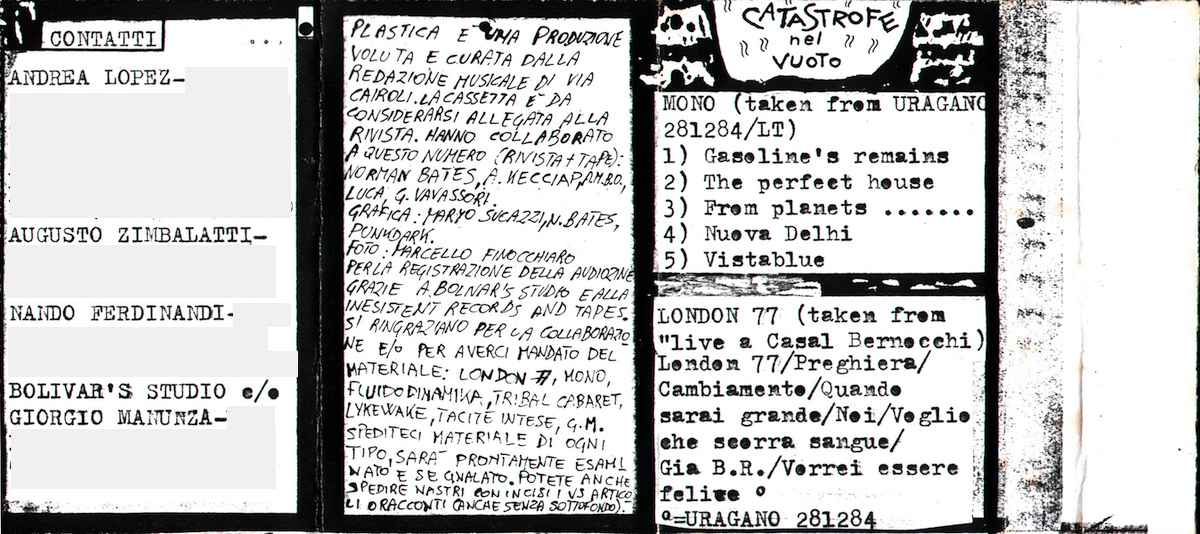 CONTATTI
ANDREA LOPEZ-
AUGUSTO ZIMBALATTI-
NANDO FERDINANDI-
BOLIVAR'S STUDIO c/o
GIORGIO MANUNZA-
PLASTICA E' UNA PRODUZIONE
VOLUTA E CURATA DALLA
REDAZIONE MUSICALE DI VIA
CAIROLI. LA CASSETTA E' DA
CONSIDERARSI ALLEGATA ALLA
RIVISTA. HANNO COLLABORATO
A QUESTO NUMERO (RIVISTA + TAPE):
NORMAN BATES, A. MECCIAP, P.M.B.O.,
LUCA, G. VAVASSORI.
GRAFICA: MARYO SUCAZZI, N. BATES,
PUNKDARK.
FOTO: MARCELLO FINOCCHIARO
PER LA REGISTRAZIONE DELLA AUDIOZINE
GRAZIE A BOLNAR'S STUDIO E ALLA
INESISTENT RECORDS AND TAPES.
SI RINGRAZIANO PER LA COLLABORAZIO
NE E/O PER AVERCI MANDATO DEL
MATERIALE: LONDON 77, MONO,
FLUIDODINAMIKA, TRIBAL CABARET,
LYKEWAKE, TACITE INTESE, G.M.
SPEDITECI MATERIALE DI OGNI
TIPO, SARA' PRONTAMENTE ESAMI
NATO E SEGNALATO. POTETE ANCHE
SPEDIRE NASTRI CON INCISI I VS ARTICO
LI O RACCONTI (ANCHE SENZA SOTTOFONDO).
CATASTROFE
nel
VUOTO
MONO (taken from URAGANO
281284/LT)
1) Gasoline's remains
2) The perfect house
3) From planets .......
4) Nuova Delhi
5) Vistablue
LONDON 77 (taken from
"live a Casal Bernocchi)
London 77/Preghiera/
Cambiamento/Quando
sarai grande/Noi/Voglio
che scorra sangue/
Gia B.R./Vorrei essere
felice °
°=URAGANO 281284